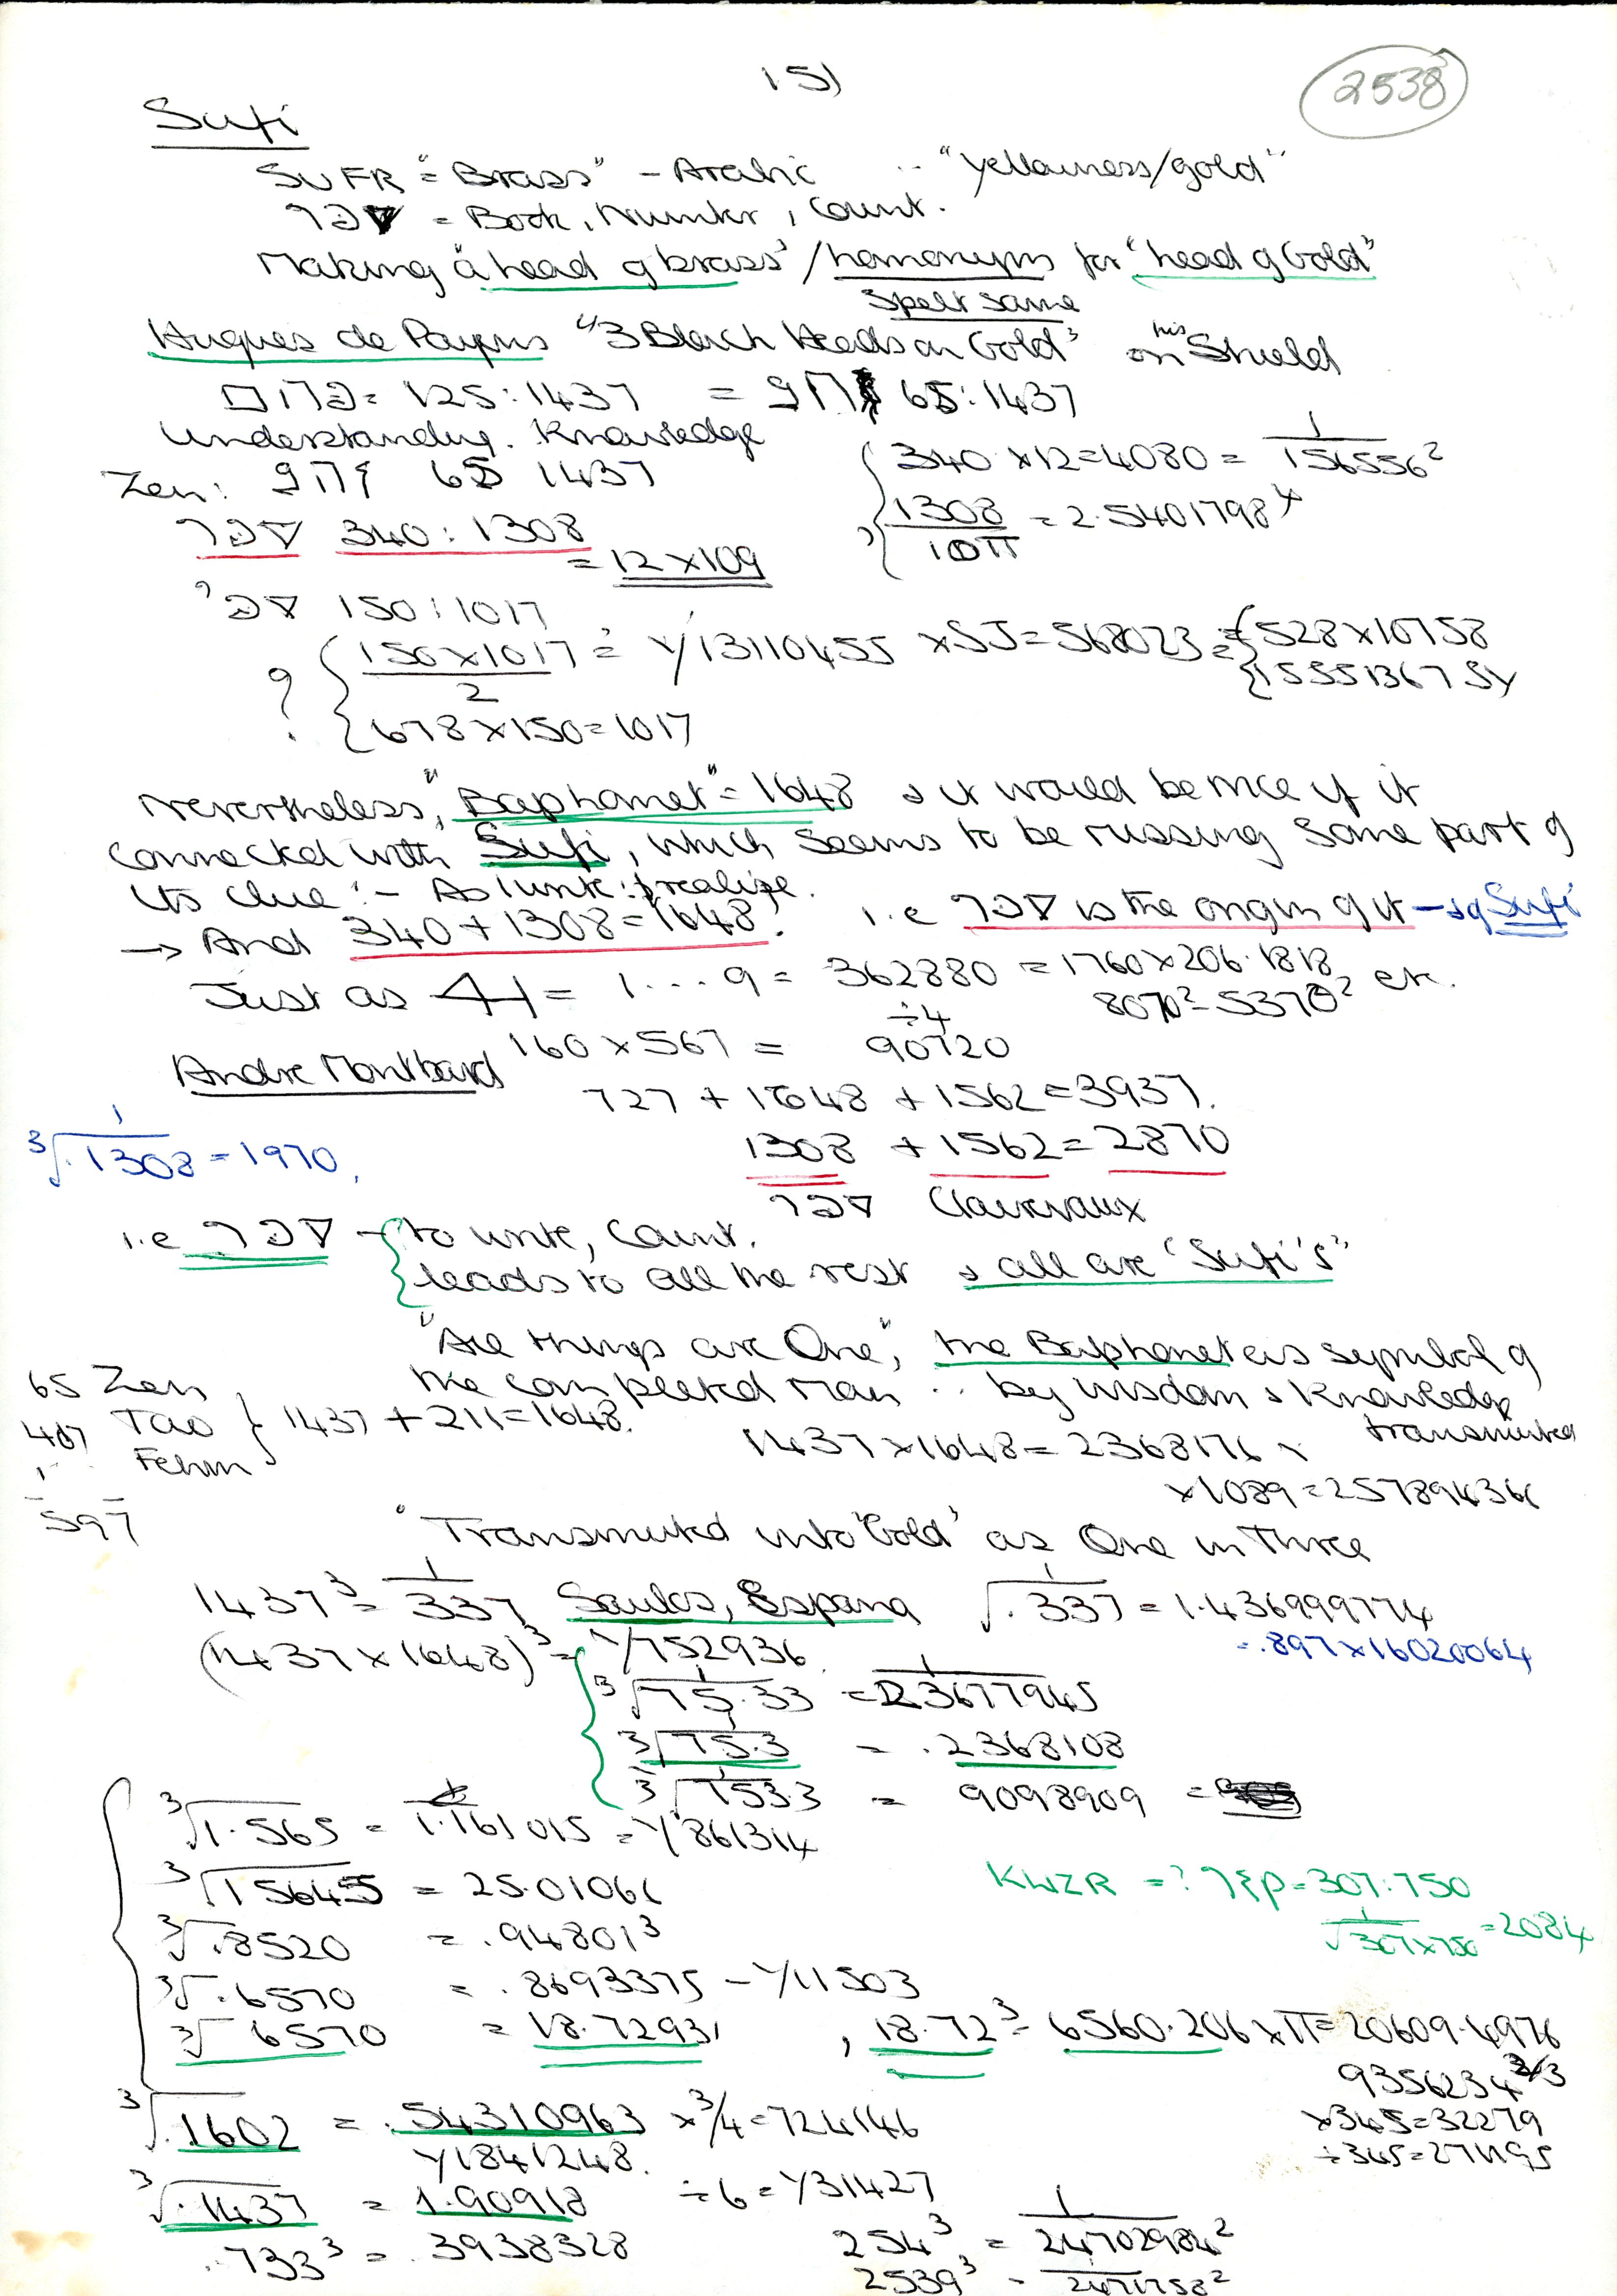 15)
2538
Sufi
SUFR = "Brass" - Arabic ∴ "yellowness/gold"
= Book, Number, Count.
Making "a head of brass" / homonym for "head of Gold"
spelt same
Hugues de Payens "3 Black Heads on Gold" on his Shield
125:1437 = 65:1437
Understanding. Knowledge
Zen: 65 1437
340 × 12 = 4080 = 1/156556²
340:1308
1308/10π = 2.5401798
= 12 × 109
150:1017
? 150×1017/2 = 1/13110455 × 55 = 568023 = 528×10758
15551367 5
678×150=1017
Nevertheless, "Baphomet" = 1648 & it would be nice if it
connected with Sufi, which seems to be missing some part of
its clue :- As I write I realize.
→ And 340 + 1308 = 1648. i.e is the origin of it → & of Sufi
Just as = 1...9 = 362880 = 1760×206.1818
8070² - 5370² etc.
÷4
160 × 567 = 90720
Andre Montbard
727 + 1648 + 1562 = 3937.
³√.1308 = 1970.
1308 + 1562 = 2870
Clairvaux
i.e to write, count.
leads to all the rest & all are "Sufi's"
"All things are One", the Baphomet is symbol of
the completed Man ∴ by wisdom & Knowledge
transmuted
65 Zen
407 Tao } 1437 + 211 = 1648.
Fehm
597
1437×1648 = 2368176
×1089 = 257894366
"Transmuted into 'Gold' as One in Three
1437³ = 1/337 Saulos, Espana √.337 = 1.436999774
= .897×16020064
(1437×1648)³ = 1/752936
³√75.33 = 1/23677945
³√75.3 = .2368108
³√753.3 = 9098909 =
³√1.565 = 1.161015 = 1/861314
³√15645 = 25.01066
³√.8520 = .948013
³√.6570 = .8693375 - 1/11503
³√6570 = 18.72931, 18.72³ = 6560.206×π = 20609.4976
KWZR = ? = 307:750
√307×750 = 2084
9356234
×345=32279
÷345=271195
³√.1602 = .54310963 ×3/4 = 724146
1/1841248.
³√.1437 = 1.90918 ÷6 = 1/31427
.733³ = .3938328
254³ = 1/24702984²
2539³ =